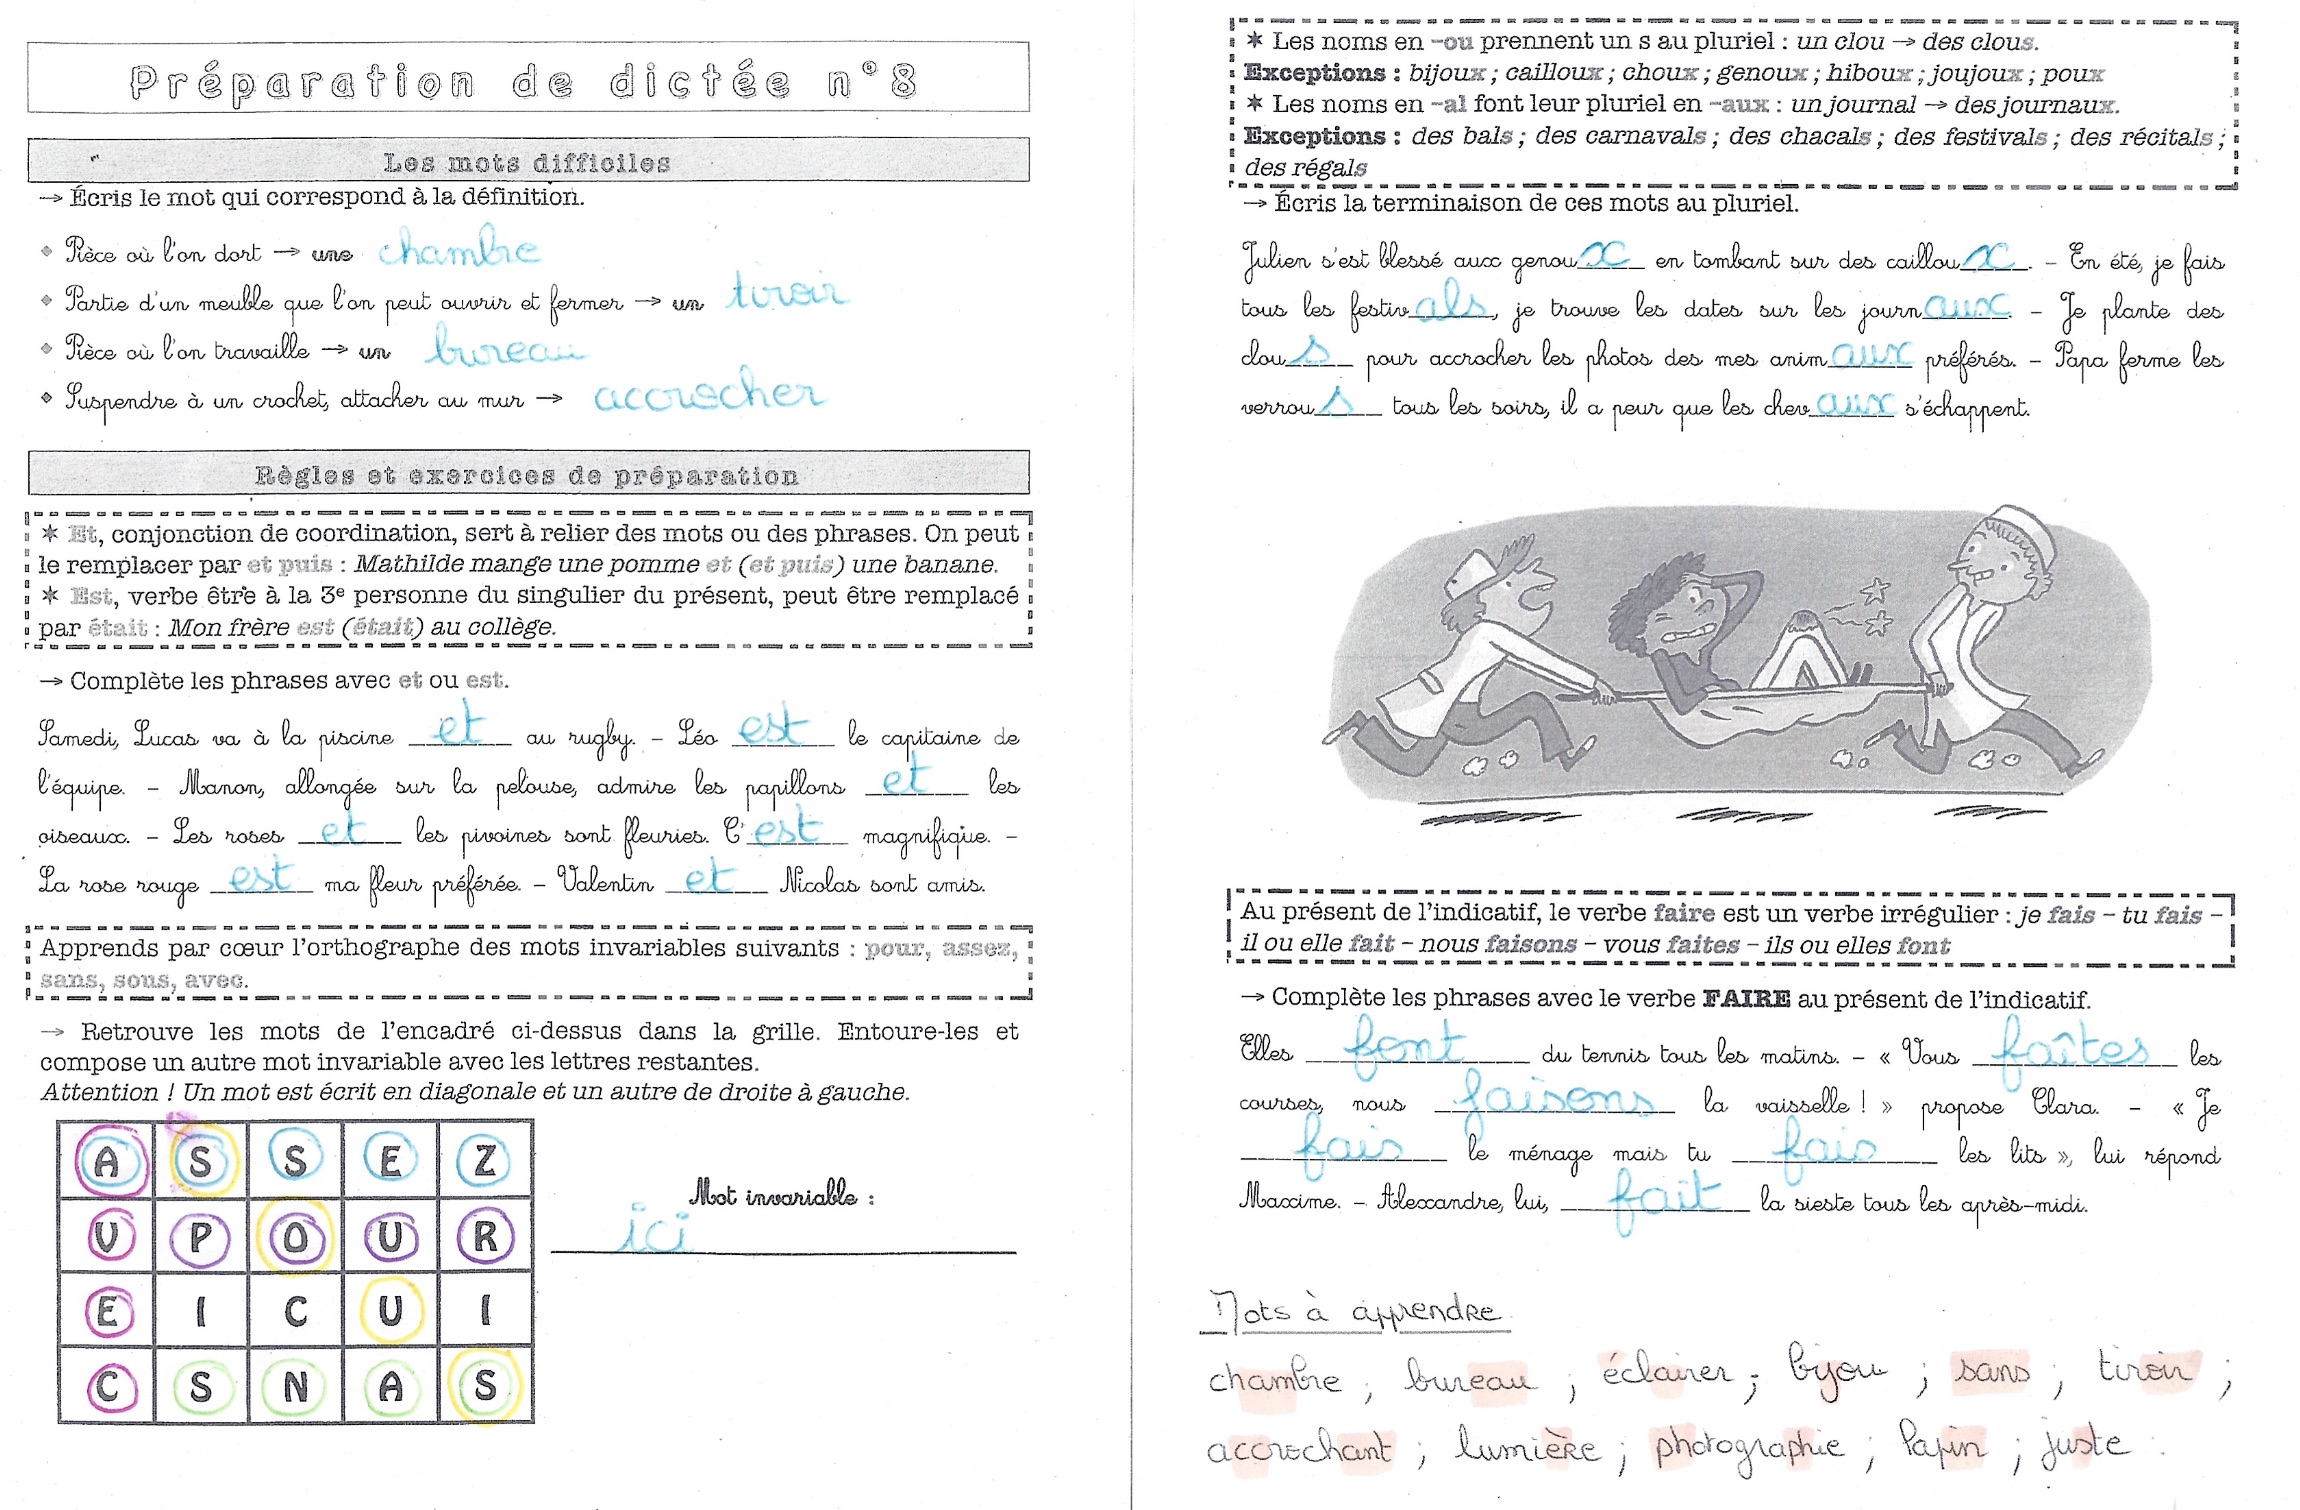 Préparation de dictée n°8
Les mots difficiles
→ Écris le mot qui correspond à la définition.
• Pièce où l'on dort → une chambre
• Partie d'un meuble que l'on peut ouvrir et fermer → un tiroir
• Pièce où l'on travaille → un bureau
• Suspendre à un crochet, attacher au mur → accrocher
Règles et exercices de préparation
✶ Et, conjonction de coordination, sert à relier des mots ou des phrases. On peut
le remplacer par et puis : Mathilde mange une pomme et (et puis) une banane.
✶ Est, verbe être à la 3e personne du singulier du présent, peut être remplacé
par était : Mon frère est (était) au collège.
→ Complète les phrases avec et ou est.
Samedi, Lucas va à la piscine et au rugby. – Léo est le capitaine de
l'équipe. – Manon, allongée sur la pelouse, admire les papillons et les
oiseaux. – Les roses et les pivoines sont fleuries. C'est magnifique. –
La rose rouge est ma fleur préférée. – Valentin et Nicolas sont amis.
Apprends par cœur l'orthographe des mots invariables suivants : pour, assez,
sans, sous, avec.
→ Retrouve les mots de l'encadré ci-dessus dans la grille. Entoure-les et
compose un autre mot invariable avec les lettres restantes.
Attention ! Un mot est écrit en diagonale et un autre de droite à gauche.
A S S E Z
V P O U R
E I C U I
C S N A S
Mot invariable :
ici
✶ Les noms en -ou prennent un s au pluriel : un clou → des clous.
Exceptions : bijoux ; cailloux ; choux ; genoux ; hiboux ; joujoux ; poux
✶ Les noms en -al font leur pluriel en -aux : un journal → des journaux.
Exceptions : des bals ; des carnavals ; des chacals ; des festivals ; des récitals ;
des régals
→ Écris la terminaison de ces mots au pluriel.
Julien s'est blessé aux genoux en tombant sur des cailloux. – En été, je fais
tous les festivals, je trouve les dates sur les journaux. – Je plante des
clous pour accrocher les photos des mes animaux préférés. – Papa ferme les
verrous tous les soirs, il a peur que les chevaux s'échappent.
Au présent de l'indicatif, le verbe faire est un verbe irrégulier : je fais – tu fais –
il ou elle fait – nous faisons – vous faites – ils ou elles font
→ Complète les phrases avec le verbe FAIRE au présent de l'indicatif.
Elles font du tennis tous les matins. – « Vous faîtes les
courses, nous faisons la vaisselle ! » propose Clara. – « Je
fais le ménage mais tu fais les lits », lui répond
Maxime. – Alexandre, lui, fait la sieste tous les après-midi.
Mots à apprendre
chambre ; bureau ; éclairer ; bijou ; sans ; tiroir ;
accrochant ; lumière ; photographie ; lapin ; juste.